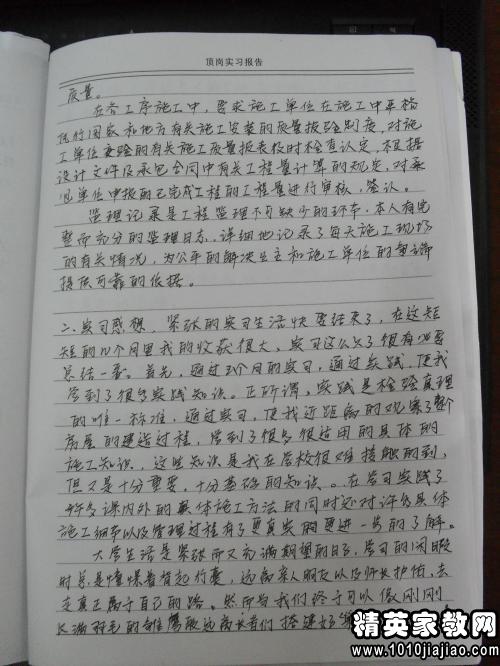 顶岗实习报告
质量。
在各工序施工中，要求施工单位在施工中严格
执行国家和地方有关施工安装的质量报验制度，对施
工单位交验的有关施工质量报表及时检查认定，根据
设计文件及承包合同中有关工程量计算的规定，对承
包单位申报的已完成工程的工程量进行审核，签认。
监理记录是工程监理不可缺少的环节。本人有完
整而充分的监理日志，详细地记录了每天施工现场
的有关情况，为公平的解决业主和施工单位的
提供可靠的依据。
二、实习感想，紧张的实习生活快要结束了，在这短
短的 个月里我的收获很大，实习这么久了很有必要
总结一番。首先，通过 个月的实习，通过实践，使我
学到了很多实践知识。正所谓，实践是检验真理
的唯一标准，通过实习，使我近距离的观察了整个
房屋的建造过程，学到了很多很适用的具体的
施工知识，这些知识是我在学校很难接触的到，
但又是十分重要，十分基础的知识。。在学习实践了
许多课内外的具体施工方法的同时还对许多具体
施工细节以及管理过程有了更真实的更进一步的了解。
大学生活是紧张而又充满期望的日子，学习的闲暇
时总是憧憬着背起行囊，远离亲人朋友以及师长护佑，去
走真正属于自己的路。然而当我们终于可以像刚刚
长满羽毛的雏鹰般远离长者们搭建好
精英家教网
www.1010jiajiao.com